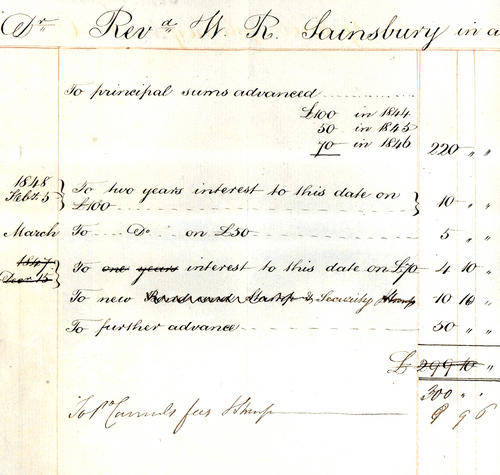 Dr Revd W. R. Sainsbury in a
To principal sums advanced
£100 in 1844
50 in 1845
70 in 1846 220 " "
1848
Febr. 5 To two years interest to this date on
£100 10 " "
March To Do on £50 5 " "
1847
Decr 15 To one years interest to this date on £70 4 10 "
To new & Security Stamp 10 10 "
To further advance 50 " "
£ 299 10 "
300 " "
fees & Stamp 9 6